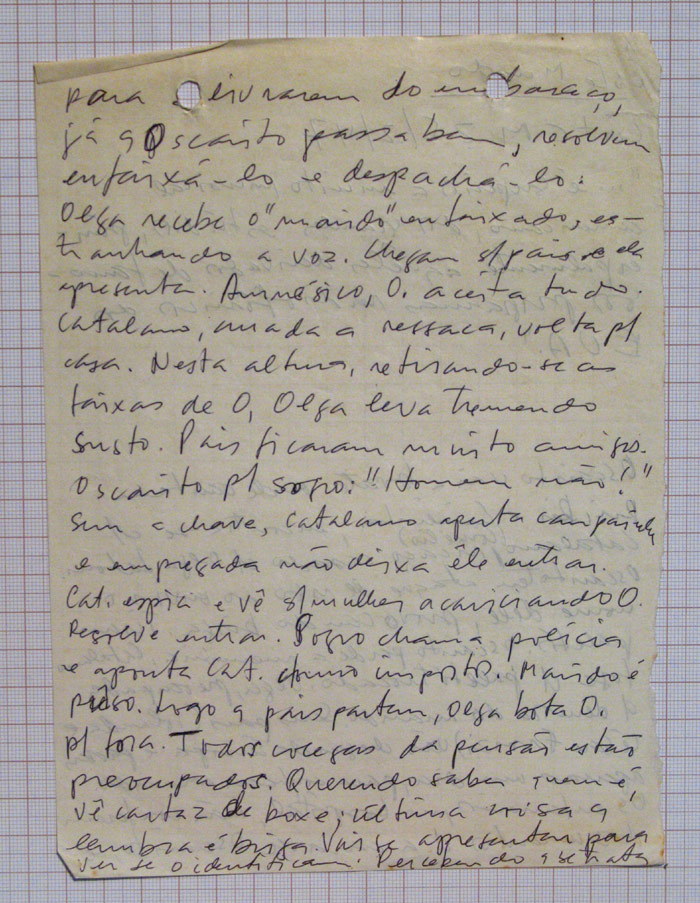 para se livrarem do embaraço,
já q Oscarito passa bem, resolvem
enfaixá-lo e despachá-lo:
Olga recebe o "marido" enfaixado, es-
tranhando a voz. Chegam s/pais e ela
apresenta. Amnésico, O. aceita tudo.
Catalano, curada a ressaca, volta p/
casa. Nesta altura, retirando-se as
faixas de O, Olga leva tremendo
susto. Pais ficaram muito amigos.
Oscarito p/ sogro: "Homem não!"
Sem a chave, Catalano aperta campainha
e empregada não deixa êle entrar.
Cat. espia e vê s/mulher acariciando O.
Resolve entrar. Sogro chama polícia
e aponta Cat. como impostor. Marido é
prêso. Logo q pais partem, Olga bota O.
p/ fora. Todos colegas da pensão estão
preocupados. Querendo saber quem é,
vê cartaz de boxe; última coisa q
lembra é briga. Vai se apresentar para
ver se o identificam. Percebendo q se trata